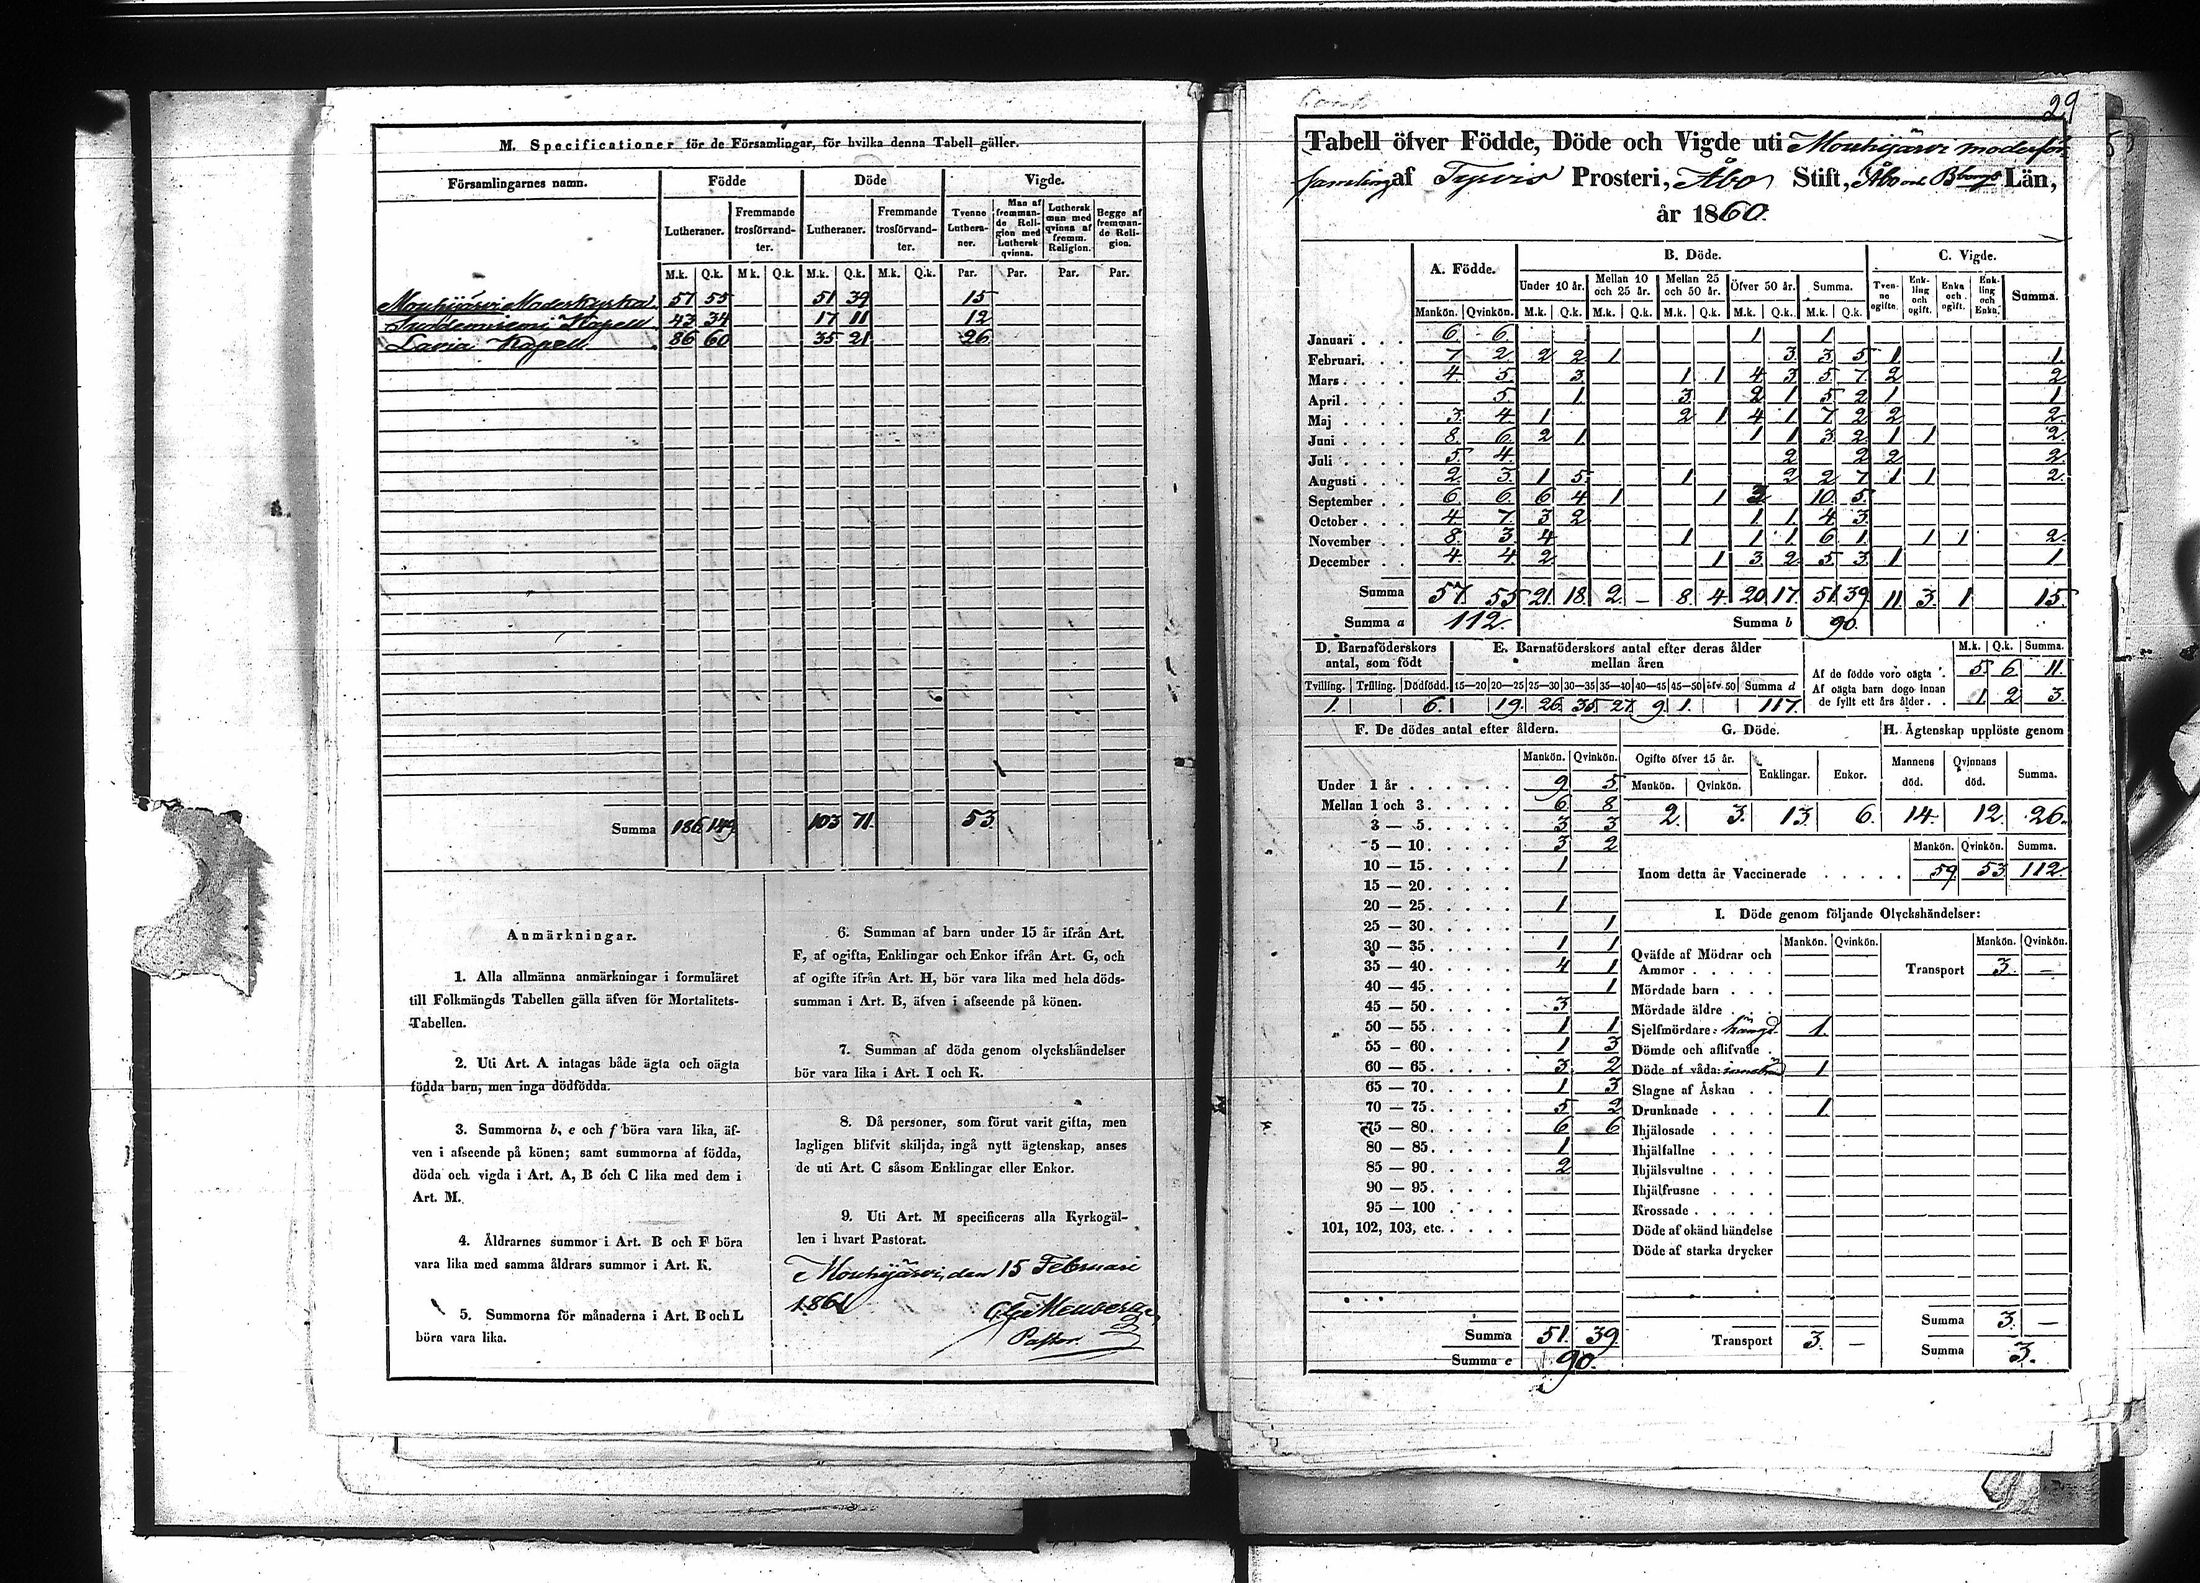 M. Specificationer för de Församlingar, för hvilka denna Tabell gäller.
Församlingarnes namn. Födde Döde Vigde.
Lutheraner. Fremmande trosförvandter. Lutheraner. Fremmande trosförvandter. Tvenne Lutheraner. Man af fremmande Religion med Luthersk qvinna. Luthersk man med qvinna af fremm. Religion. Begge af fremmande Religion.
M.k. Q.k. M.k. Q.k. M.k. Q.k. M.k. Q.k. Par. Par. Par. Par.
Mouhijärvi Moderkyrka 57 55 51 39 15
Suodenniemi Kapell 43 34 17 11 12
Lavia Kapell 86 60 35 21 26
Summa 186 149 103 71 53
Anmärkningar.
1. Alla allmänna anmärkningar i formuläret
till Folkmängds Tabellen gälla äfven för Mortalitets-
-Tabellen.
2. Uti Art. A intagas både ägta och oägta
födda barn, men inga dödfödda.
3. Summorna b, e och f böra vara lika, äf-
ven i afseende på könen; samt summorna af födda,
döda och vigda i Art. A, B och C lika med dem i
Art. M.
4. Åldrarnes summor i Art. B och F böra
vara lika med samma åldrars summor i Art. K.
5. Summorna för månaderna i Art. B och L
böra vara lika.
6. Summan af barn under 15 år ifrån Art.
F, af ogifta, Enklingar och Enkor ifrån Art. G, och
af ogifte ifrån Art. H, bör vara lika med hela döds-
summan i Art. B, äfven i afseende på könen.
7. Summan af döda genom olyckshändelser
bör vara lika i Art. I och K.
8. Då personer, som förut varit gifta, men
lagligen blifvit skiljda, ingå nytt ägtenskap, anses
de uti Art. C såsom Enklingar eller Enkor.
9. Uti Art. M specificeras alla Kyrkogäl-
len i hvart Pastorat.
Mouhijärvi, den 15 Februari
1861
Pastor.
29
Tabell öfver Födde, Döde och Vigde uti Mouhijärvi moderför-
samling af Tyrvis Prosteri, Åbo Stift, Åbo och Bborgs Län,
år 1860.
A. Födde. B. Döde. C. Vigde.
Under 10 år. Mellan 10 och 25 år. Mellan 25 och 50 år. Öfver 50 år. Summa. Tvenne ogifte. Enkling och ogift. Enka och ogift. Enkling och Enka. Summa.
Mankön. Qvinkön. M.k. Q.k. M.k. Q.k. M.k. Q.k. M.k. Q.k. M.k. Q.k.
Januari 6 6 1 1
Februari 7 2 2 2 1 3 3 5 1 1
Mars 4 5 3 1 1 4 3 5 7 2 2
April 5 1 3 2 1 5 2 1 1
Maj 3 4 1 2 1 4 1 7 2 2 2
Juni 8 6 2 1 1 1 3 2 1 1 2
Juli 5 4 2 2 2 2
Augusti 2 3 1 5 1 2 2 7 1 1 2
September 6 6 6 4 1 1 3 10 5
October 4 7 3 2 1 1 4 3
November 8 3 4 1 1 1 6 1 1 1 2
December 4 4 2 1 3 2 5 3 1 1
Summa 57 55 21 18 2 - 8 4 20 17 51 39 11 3 1 15
Summa a 112. Summa b 90.
D. Barnaföderskors antal, som födt
E. Barnaföderskors antal efter deras ålder mellan åren
M.k. Q.k. Summa.
Tvilling. Trilling. Dödfödd. 15—20 20—25 25—30 30—35 35—40 40—45 45—50 öfv. 50 Summa d
1. 6. 19. 26. 35. 27. 9. 1. 117.
Af de födde voro oägta 5. 6 11.
Af oägta barn dogo innan de fyllt ett års ålder 1. 2 3.
F. De dödes antal efter åldern.
Mankön. Qvinkön.
Under 1 år 9 5
Mellan 1 och 3 6 8
3 — 5 3 3
5 — 10 3 2
10 — 15 1
15 — 20
20 — 25 1
25 — 30 1
30 — 35 1 1
35 — 40 4 1
40 — 45 1
45 — 50 3
50 — 55 1 1
55 — 60 1 3
60 — 65 3 2
65 — 70 1 3
70 — 75 5 2
75 — 80 6 6
80 — 85 1
85 — 90 2
90 — 95
95 — 100
101, 102, 103, etc.
Summa 51 39
Summa e 90.
G. Döde.
Ogifte öfver 15 år. Enklingar. Enkor.
Mankön. Qvinkön.
2. 3. 13. 6.
H. Ägtenskap upplöste genom
Mannens död. Qvinnans död. Summa.
14. 12. 26.
Mankön. Qvinkön. Summa.
Inom detta år Vaccinerade 59 53 112.
I. Döde genom följande Olyckshändelser:
Mankön. Qvinkön. Mankön. Qvinkön.
Qväfde af Mödrar och Ammor
Transport 3. -
Mördade barn
Mördade äldre
Sjelfmördare: hängd 1.
Dömde och aflifvade
Döde af våda: 1
Slagne af Åskan
Drunknade 1
Ihjälosade
Ihjälfallne
Ihjälsvultne
Ihjälfrusne
Krossade
Döde af okänd händelse
Döde af starka drycker
Summa 3. -
Transport 3. -
Summa 3.